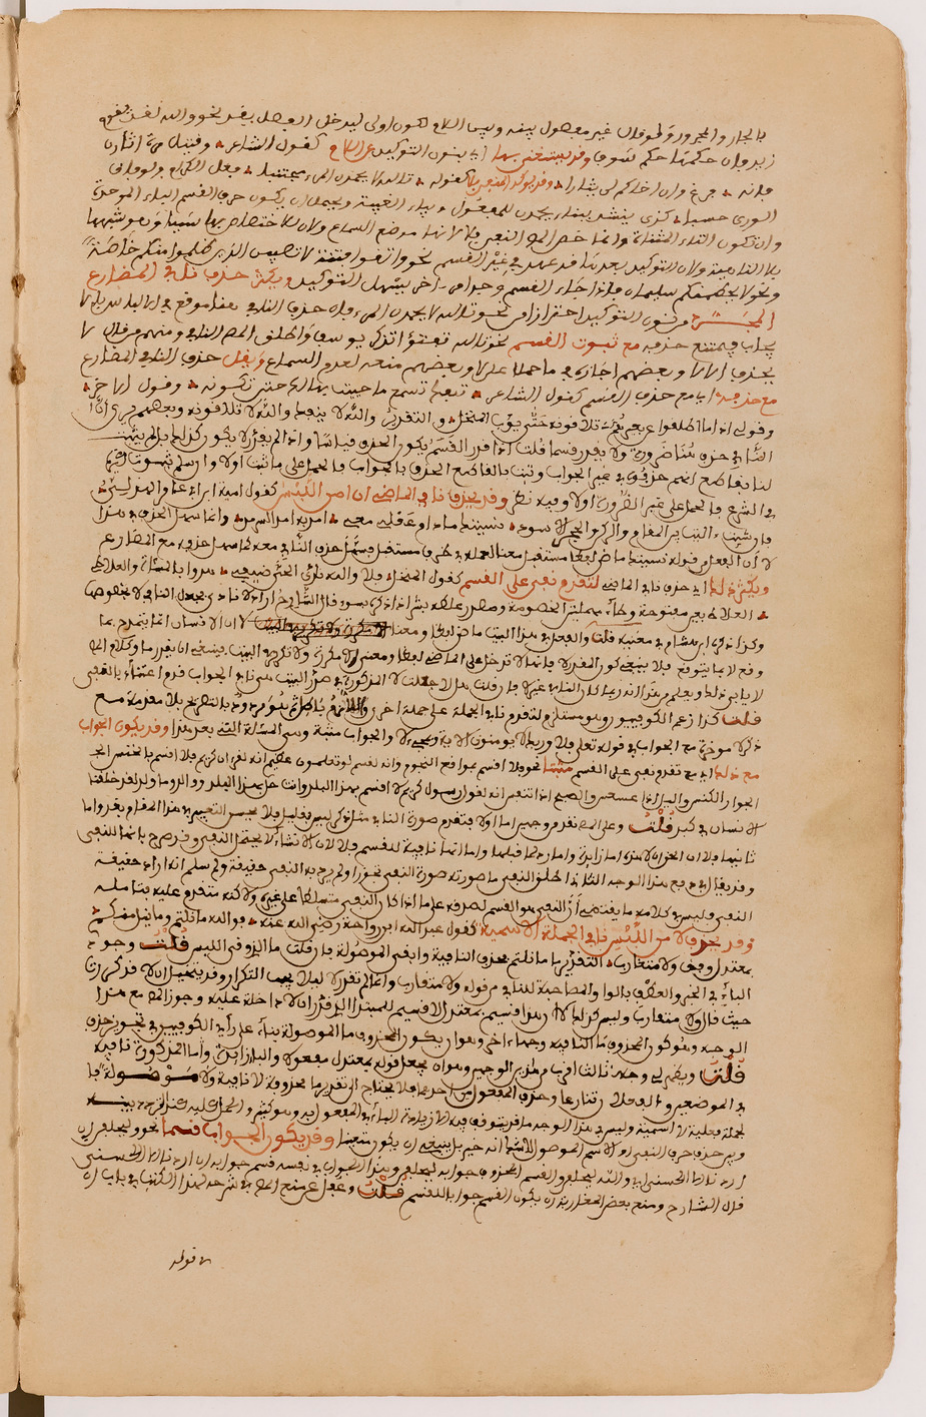 بالجار والمجرور ولو قال غير مفصول بينه وبين اللام لكان اولى ليدخل الفصل بقد نحو والله لقد يقوم
زيد فان حكمها حكم سوف وقد يستغنى بها اي بنون التوكيد عن اللام كقول الشاعر وقتيل مرة اثأرن
فانه فرغ وان اخاكم لم يثأر وقد يؤكد المنفي بلا كقوله تالله لا يحمدن المرء مجتنبا فعل الكرام ولو فاق
الورى حسبا كذا ينشد ببناء يحمدن للمفعول وبياء الغيبة ويحتمل ان يكون حرف القسم الباء الموحدة
وان تكون التاء المثناة وانما خص المص النفي بلا لانها موضع السماع ولان للا اختصاص بها
بلا الناهية ولان التوكيد بعدها قد عهد في غير القسم نحو واتقوا فتنة لا تصيبن الذين ظلموا منكم خاصة
ونحو لا يحطمنكم سليمان فاذا جاء القسم وجد امر اخر يسهل التوكيد ويكثر حذف نافي المضارع
المجرد من نون التوكيد احترازا من نحو تالله لا يحمدن المرء فان حذف النافي هنا موقع في الالباس بلا لا
يجاب فيمتنع حذفه مع ثبوت القسم نحو تالله تفتؤا تذكر يوسف واطلق المص النافي ومنهم من قال لا
يحذف الا لا وبعضهم اجازه في ما حملا على لا وبعضهم منعه لعدم السماع ويقل حذف النافي المضارع
مع حذفه اي مع حذف القسم كقول الشاعر تنفك تسمع ما حييت بهالك حتى تكونه وقول الاخر
وقولي اذا ما اطلقوا عن بعيرهم تلاقونه حتى يؤب المنخل والتقدير والله لا ينفك والله لا تلاقونه وبعضهم يرى ان
النافي حذف هنا ضرورة ولا يقدر قسما قلت اذا قدر القسم يكون الحذف قياسا واذا لم يقدر لا يكون كذلك فلم يثبت
لنا بقاطع انهم حذفوه في غير الجواب وثبت بالقاطع الحذف في الجواب فالحمل على ما ثبت اولا وان سلم ثبوت الحذف
في الشرع فالحمل على غير الضرورة اولا وفيه نظر وقد يحذف نافي الماضي ان امن اللبس كقول امية ابن ابي عائذ الهذلي
فان شئت اليت بين المقام والركن والحجر الاسود نسيتك ما دام عقلي معي امد به امد السرمد وانما سهل الحذف في هذا
لان الفعل في قوله نسيتك ماض لفظا مستقبل معنا لعمله في ظرف مستقبل فسهل حذف النافي معه كما سهل حذفه مع المضارع
ويكثر ذلك اي حذف نافي الماضي لتقدم نفي على القسم كقول المنخل فلا والله نادى الحي ضيفي هدوا بالمساءة والعلاط
العلاط بعين مفتوحة وطاء مهملتين الخصومة وهدر علطه بشر اذا ذكره بسوء قال الشارح اراد لا نادى فحذف النافي لا بخصوص
وكذا ذكر ابن هشام في مغنيه قلت والفعل في هذا البيت ماض لفظا ومعنا لان الانسان انما يتمدح بما
وقع لا بما يتوقع فلا ينبغي كون المقدر لا فانها لا تدخل على الماضي لفظا ومعنى الا مكررة ولا تكرير في البيت فينبغي ان يقدر ما وكلام المص
لا يابى ذلك ويعلم من هذا انه ريما كان النافي غيرها فان قلت هلا جعلت لا المذكورة في صدر البيت هي نافي الجواب قدم اعتناء بالنفي
قلت كذا زعم الكوفيون وهو مستلزم لتقدم نافي الجملة على جملة اخرى واللازم باطل ثم يؤيد رده بالتصريح بلا مقدمة مع
ذكر لا مؤخرة مع الجواب في قوله تعلى فلا وربك لا يومنون الاية ويجيء لا والجواب مثبة وهي المسئلة التي بعد هذا وقد يكون الجواب
مع ذلك اي مع تقدم نفي على القسم مثبتا نحو فلا اقسم بمواقع النجوم وانه لقسم لو تعلمون عظيم انه لقرءان كريم فلا اقسم بالخنس الجـ
الجوار الكنس والليل اذا عسعس والصبح اذا تنفس انه لقول رسول كريم لا اقسم بهذا البلد وانت حل بهذا البلد ووالد وما ولد لقد خلقنا
الانسان في كبد قلت وعلى المص نقد من وجهين اما اولا فتقدم صورة النافي مثل ذكر ليس بقليل فلا يحسن التعبير في هذا المقام بقد واما
ثانيا فلان الحرف لا هذه اما زايدة واما رد لما قبلها واما انها نافية للقسم فلا لان الانشاء لا يحتمل النفي وقد صرح بانها للنفي
وقد يقال في دفع هذا الوجه الثاني اطلق النفي ما صورته صورة النفي تجوزا ولم يرد به النفي حقيقة ولم سلم انه اراد حقيقة
النفي فليس في كلامه ما يقتضي ان النفي هو القسم لصدقه على ما اذا كان النفي متسلطا على غيره ولاكنه متقدم عليه بتامله
وقد يحذف لامن اللبس نافي الجملة الاسمية كقول عبد الله ابن رواحة رضي الله عنه فوالله ما نلتم وما نيل منكم
بمعتدل وفق ولا متقارب التقدير ما ما نلتم فحذف النافية وابقي الموصولة فان قلت ما المزيد في اللبس قلت وجود
الباء في الخبر والعطف بالواو المصاحبة للنافي من قوله ولا متقارب وانما لم تقدر لا ليلا يجب التكرار وقد يتخيل ان لا قد كررت
حيث قال ولا متقارب وليس كذلك لان هذا قسيم بمعتدل لا قسيم للمبتدا الذي قدر ان لا داخلة عليه وجوز المص مع هذا
الوجه وهو كون المحذوف ما النافية وجها اخر وهو ان يكون المحذوف ما الموصولة بناء على راي الكوفيين في تجويز حذف
قلت ويظهر لي وجه ثالث اقرب من هذين الوجهين وهو ان يجعل قوله بمعتدل مفعولا والباء زايدة واما المذكورة نافية
في الموضعين والفعلان تنازعا وحذف المفعول من احدهما فلا يحتاج الى تقدير ما محذوفة لا نافية ولا موصولة فا
لجملة فعلية لا اسمية وليس في هذا الوجه ما قد يتوقف فيه الا زيادة الباء في المفعول به وهو كثير والحمل عليه
وبين حذف حرف النفي او الاسم الموصول لاسيما انه خير بل ينبغي ان يكون متعينا وقد يكون الجواب قسما نحو وليحلفن ان
اردنا الا الحسنى اي والله ليحلفن والقسم المحذوف جوابه ليحلفن وهذا الجواب في نفسه قسم جوابه ان اردنا الا الحسنى
قال الشارح ومنع بعض المغاربة ان يكون القسم جوابا للقسم قلت وغفل عن منع المص في شرحه لهذا الكتاب في باب ان
لا قوله